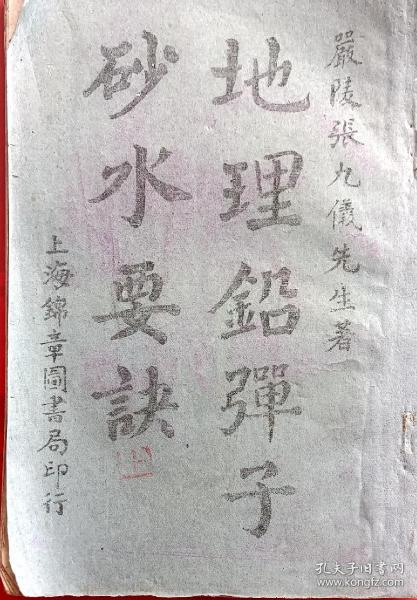 嚴陵張九儀先生著
地理鉛彈子
砂水要訣
上海錦章圖書局印行
孔夫子旧书网